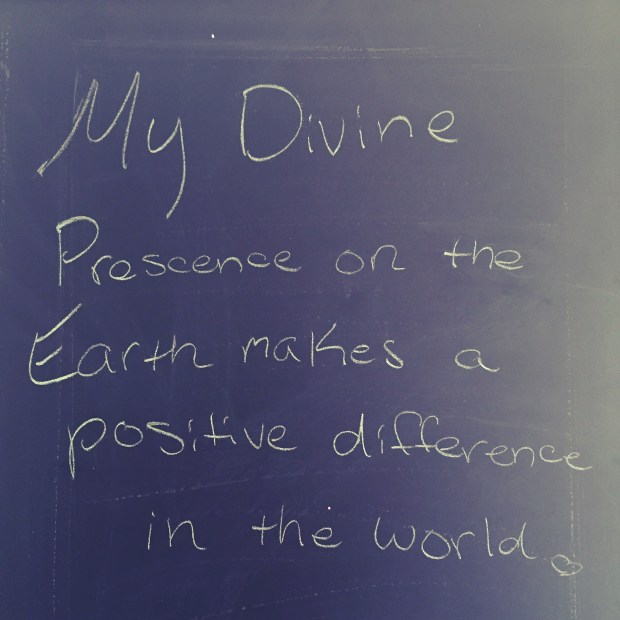 My Divine
Prescence on the
Earth makes a
positive difference
in the world.